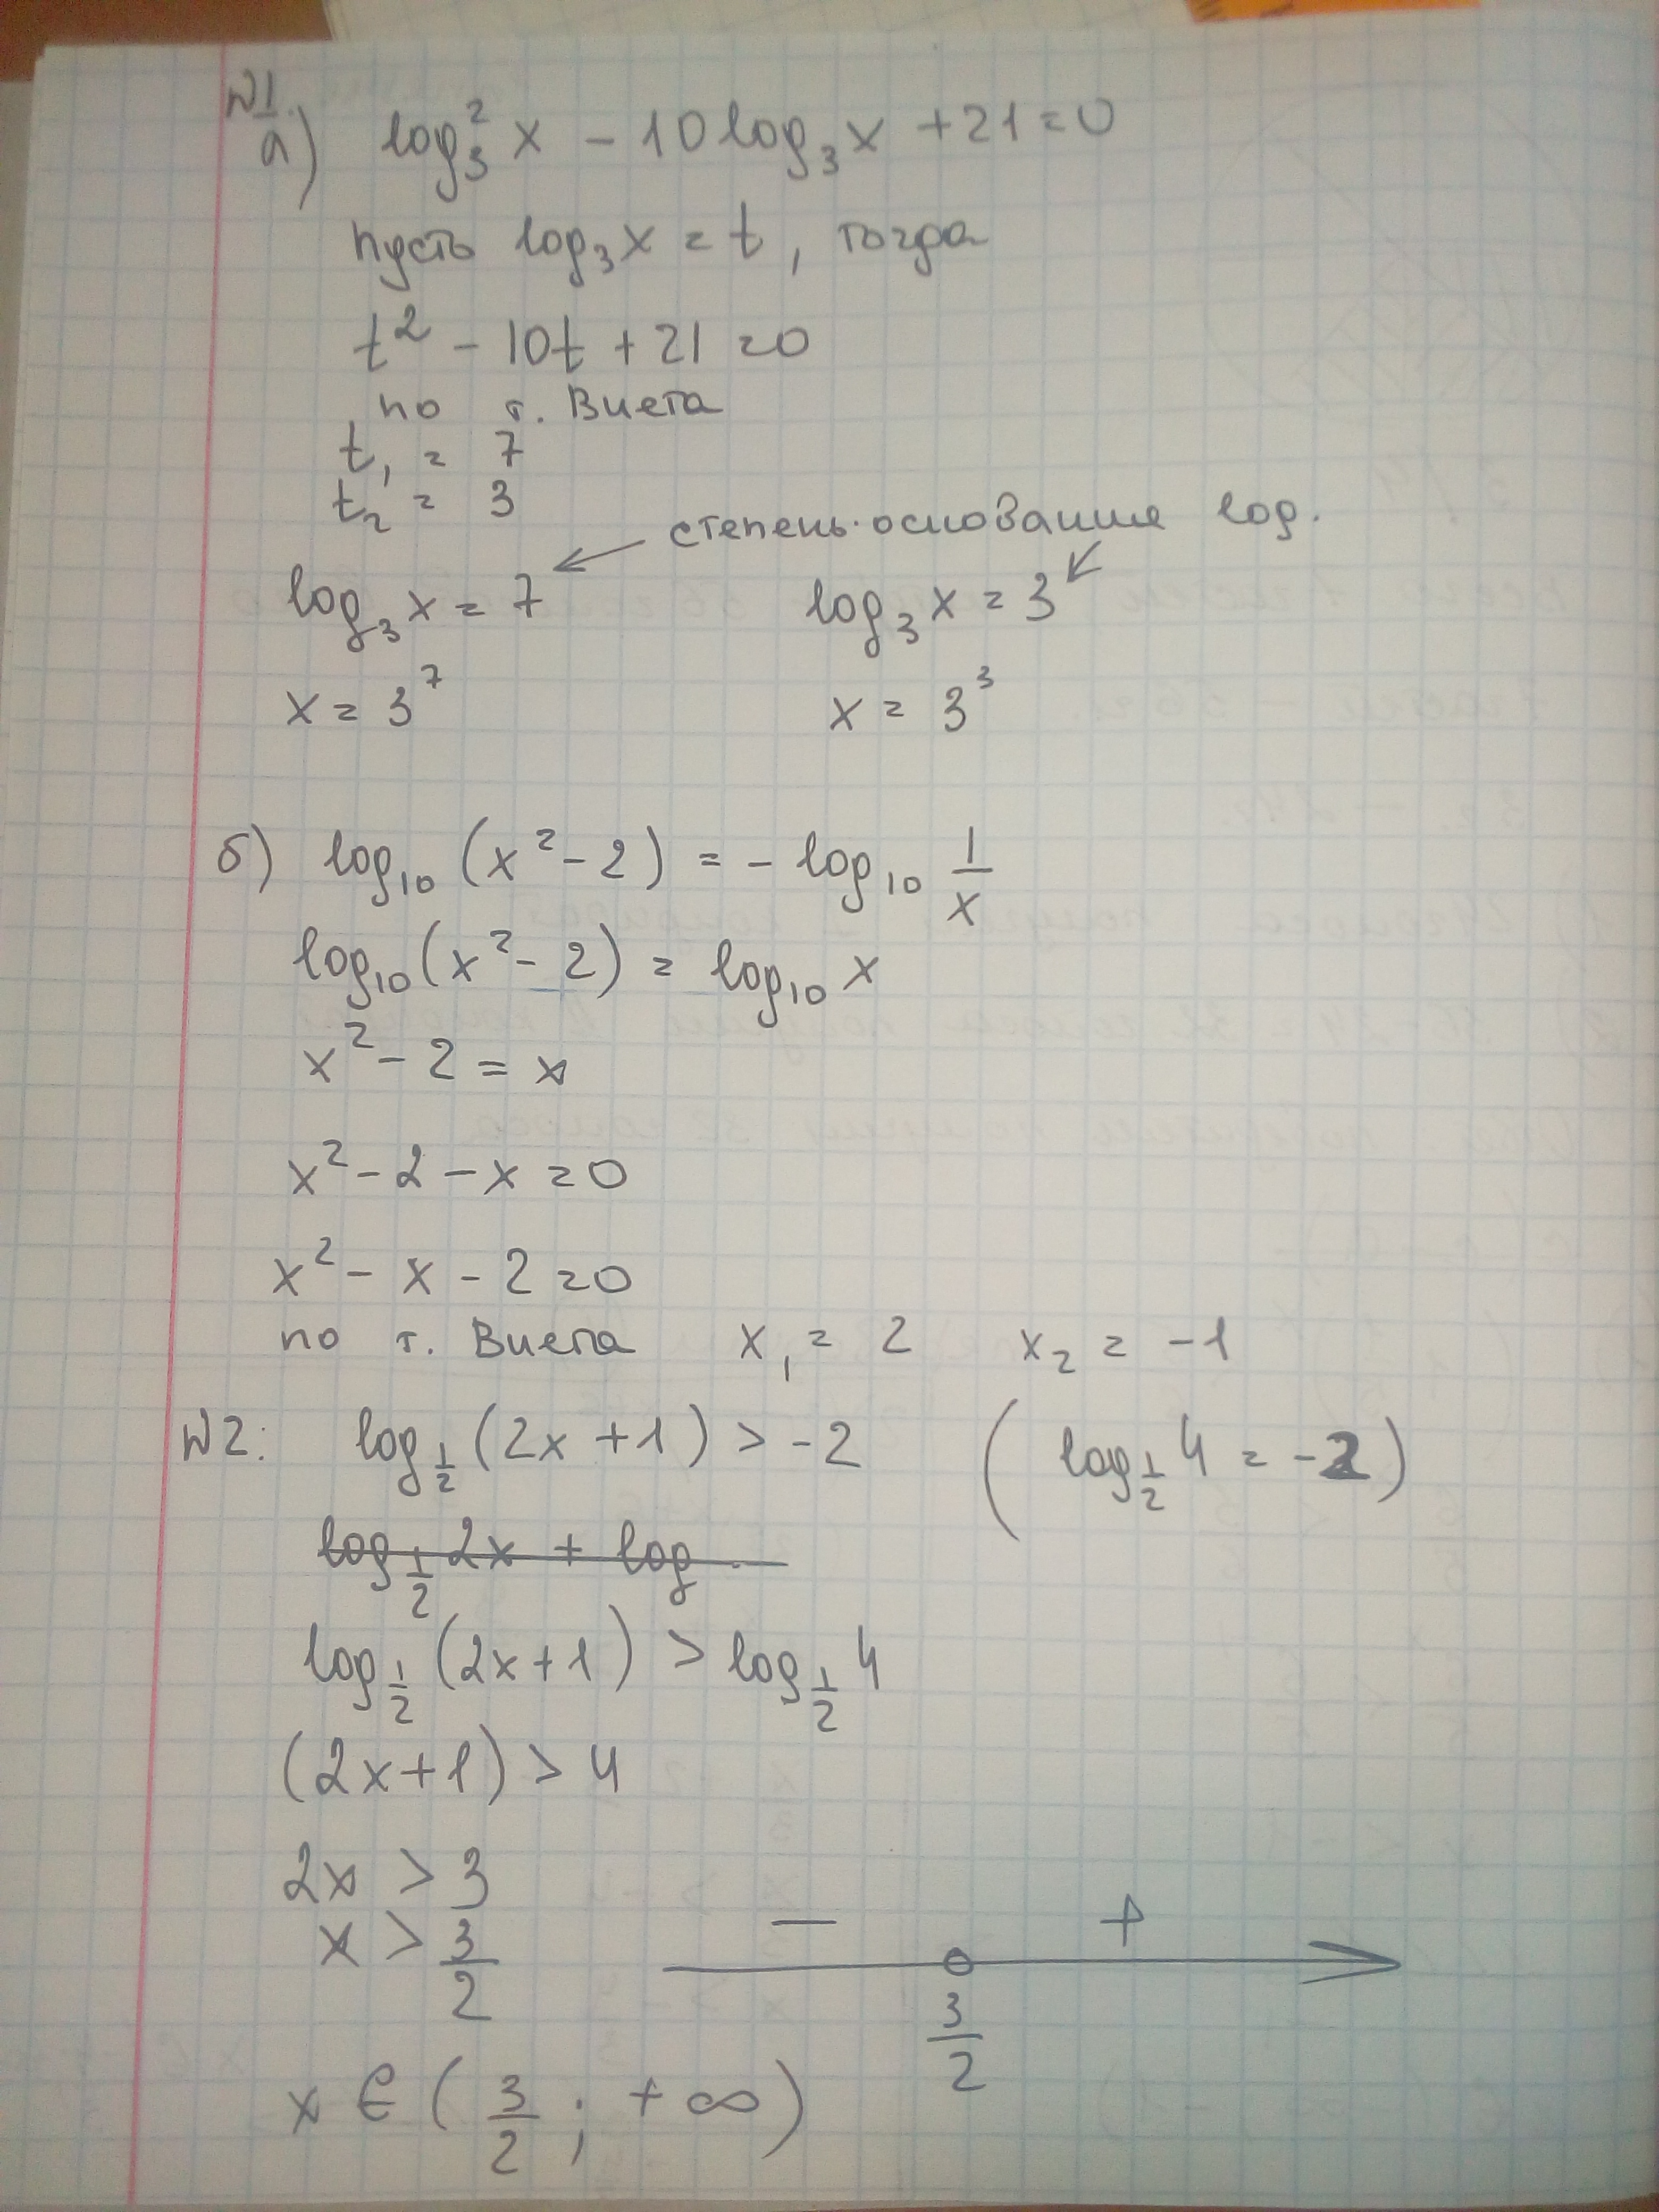 №1.
а) log₃² x - 10 log₃ x + 21 = 0
пусть log₃ x = t, тогда
t² - 10t + 21 = 0
по т. Виета
t₁ = 7
t₂ = 3
степень основания log.
log₃ x = 7 log₃ x = 3
x = 3⁷ x = 3³
б) log₁₀ (x² - 2) = - log₁₀ 1/x
log₁₀ (x² - 2) = log₁₀ x
x² - 2 = x
x² - 2 - x = 0
x² - x - 2 = 0
по т. Виета x₁ = 2 x₂ = -1
№2: log_{1/2} (2x + 1) > -2 (log_{1/2} 4 = -2)
log_{1/2} 2x + log
log_{1/2} (2x + 1) > log_{1/2} 4
(2x + 1) > 4
2x > 3
x > 3/2
− +
3/2
x ∈ (3/2 ; +∞)